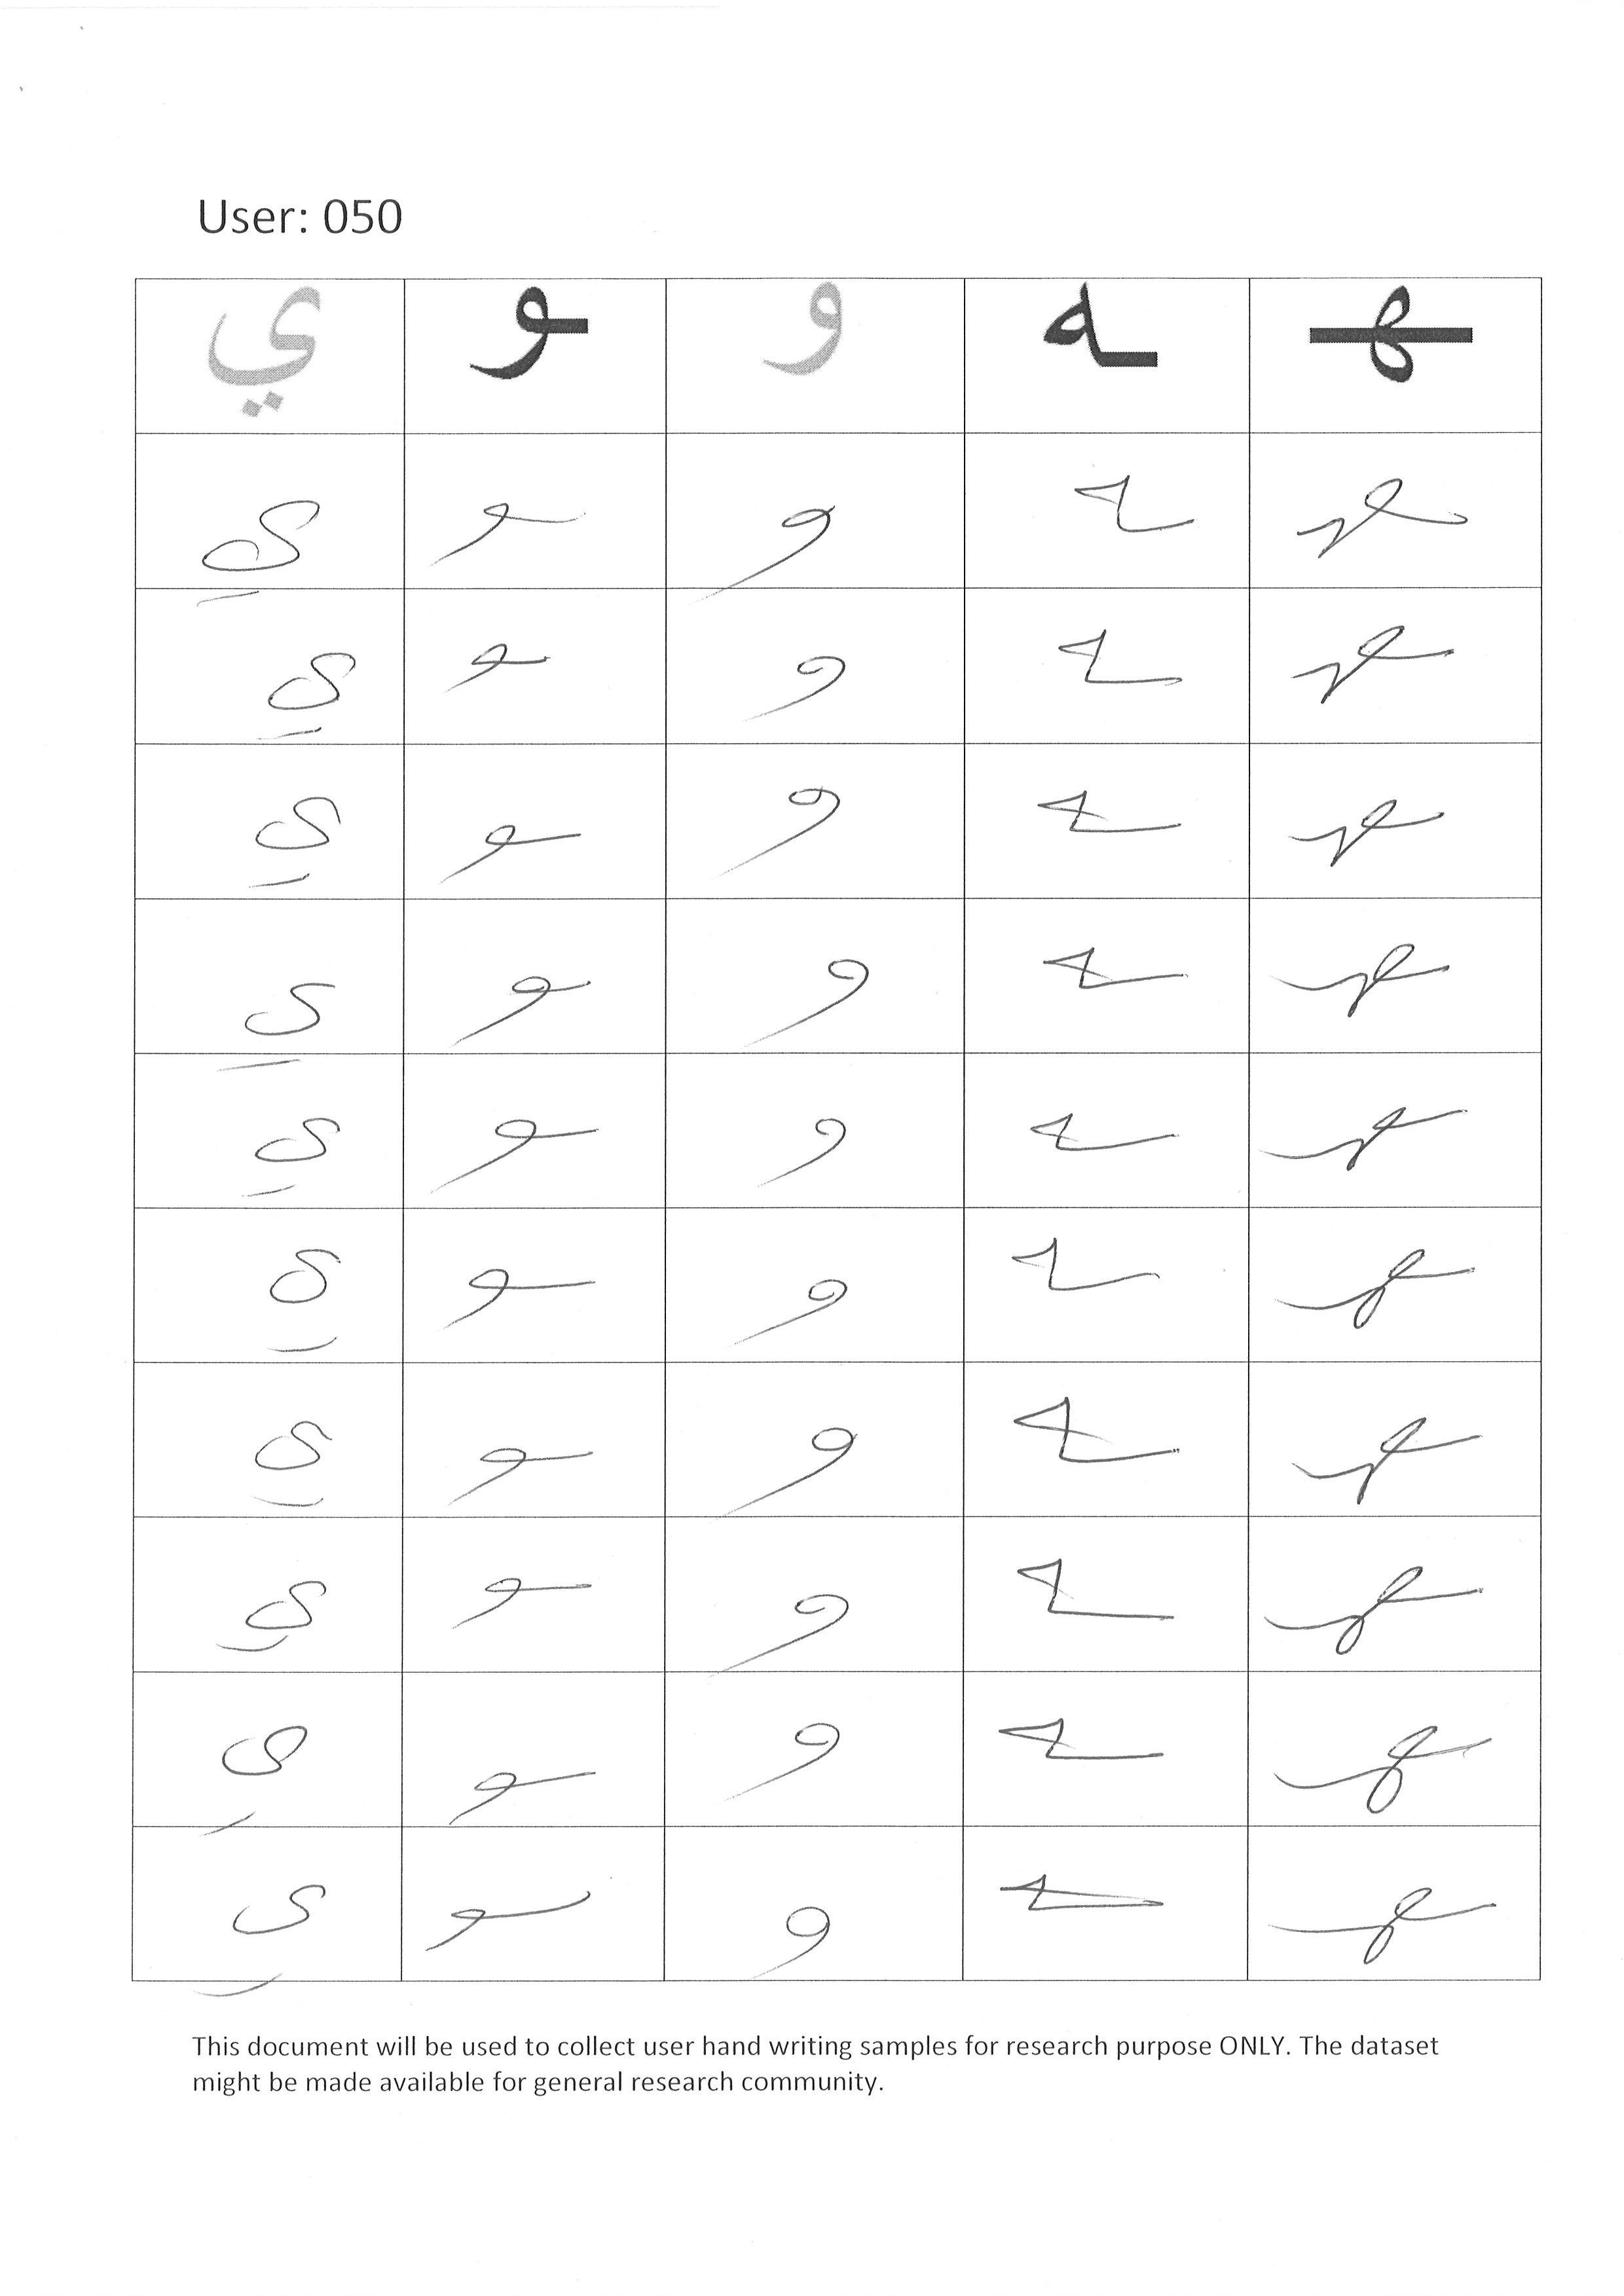 User: 050
ي ـو و ـه ـهـ
ي ـو و ـه ـهـ
ي ـو و ـه ـهـ
ي ـو و ـه ـهـ
ي ـو و ـه ـهـ
ي ـو و ـه ـهـ
ي ـو و ـه ـهـ
ي ـو و ـه ـهـ
ي ـو و ـه ـهـ
ي ـو و ـه ـهـ
ي ـو و ـه ـهـ
This document will be used to collect user hand writing samples for research purpose ONLY. The dataset
might be made available for general research community.